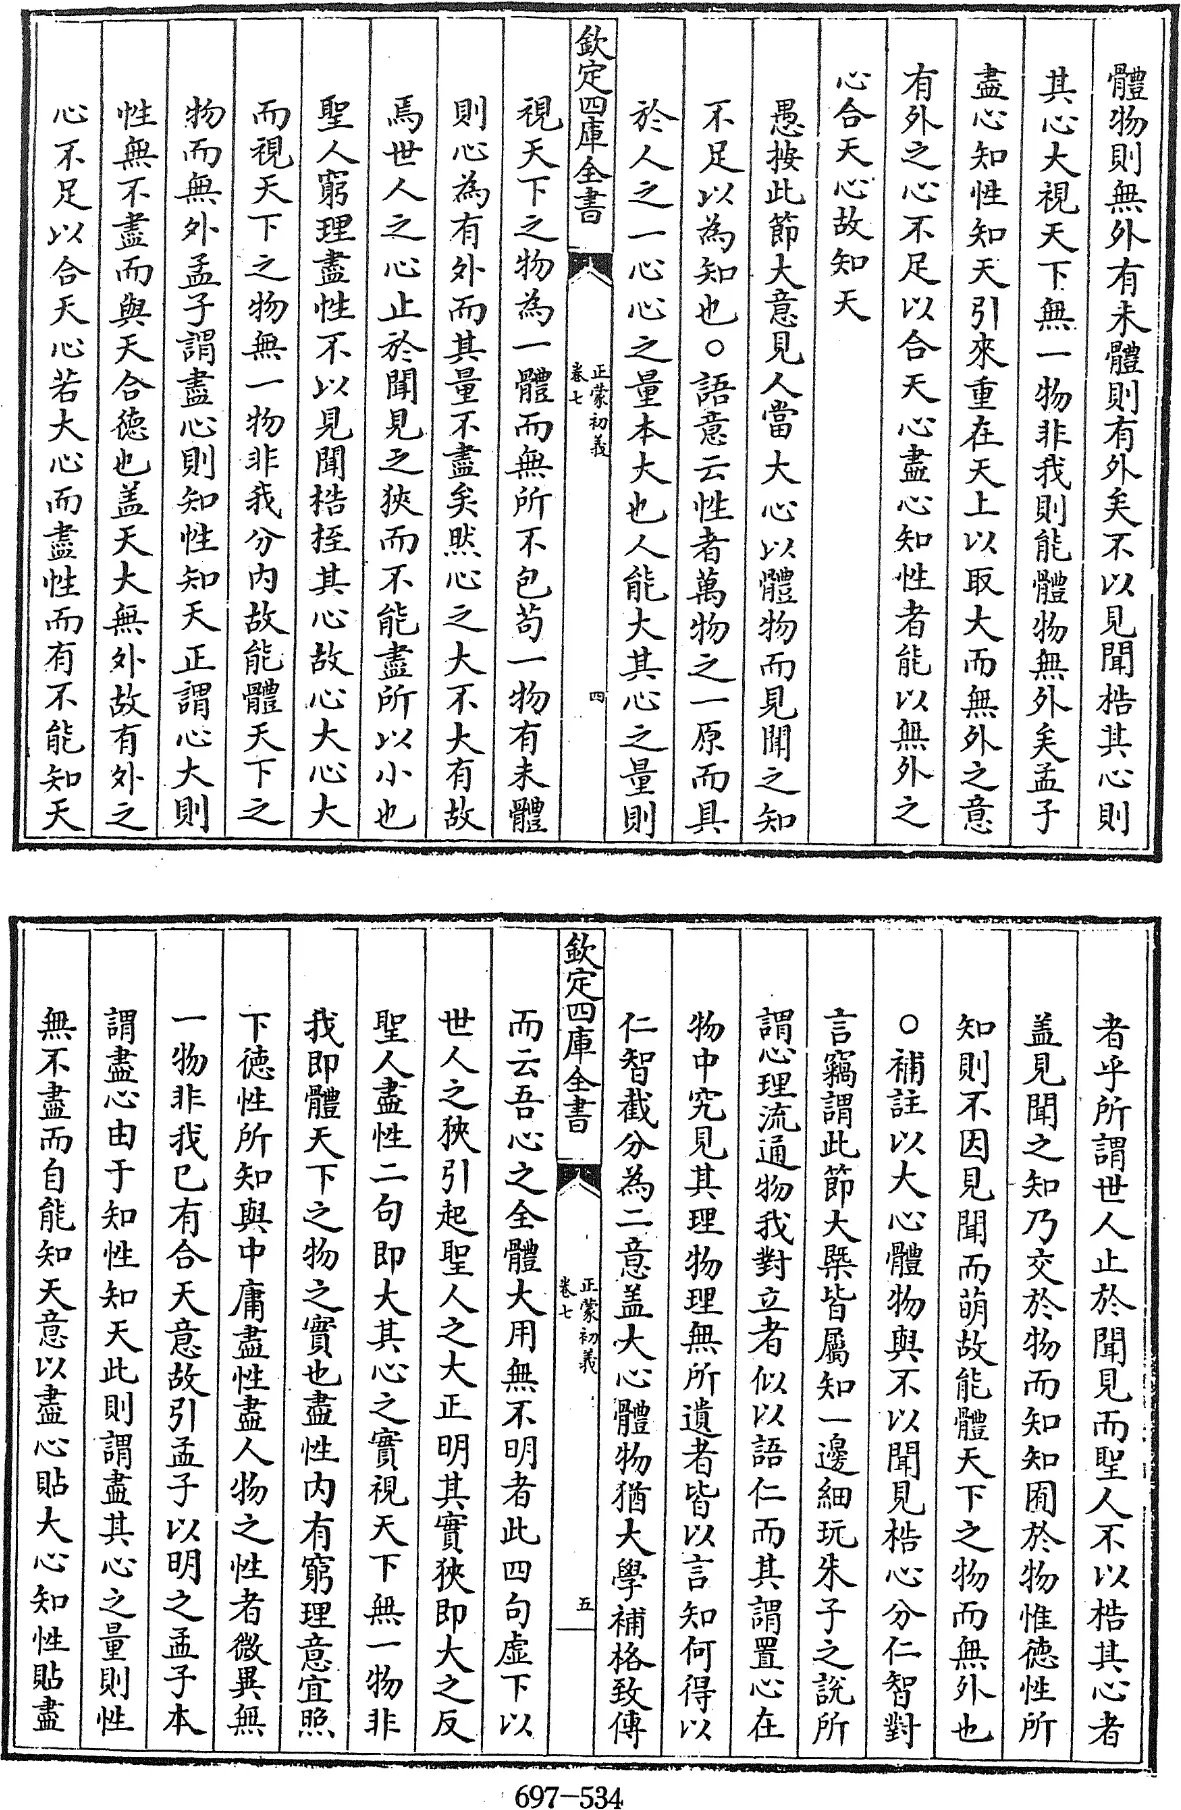 體物則無外有未體則有外矣不以見聞梏其心則
其心大視天下無一物非我則能體物無外矣孟子
盡心知性知天引來重在天上以取大而無外之意
有外之心不足以合天心盡心知性者能以無外之
心合天心故知天
愚按此節大意見人當大心以體物而見聞之知
不足以為知也○語意云性者萬物之一原而具
於人之一心心之量本大也人能大其心之量則
欽定四庫全書
正蒙初義
卷七
四
視天下之物為一體而無所不包苟一物有未體
則心為有外而其量不盡矣然心之大不大有故
焉世人之心止於聞見之狹而不能盡所以小也
聖人窮理盡性不以見聞梏挃其心故心大心大
而視天下之物無一物非我分内故能體天下之
物而無外孟子謂盡心則知性知天正謂心大則
性無不盡而與天合德也盖天大無外故有外之
心不足以合天心若大心而盡性而有不能知天
者乎所謂世人止於聞見而聖人不以梏其心者
盖見聞之知乃交於物而知知囿於物惟德性所
知則不因見聞而萌故能體天下之物而無外也
○補註以大心體物與不以聞見梏心分仁智對
言竊謂此節大槩皆屬知一邊細玩朱子之説所
謂心理流通物我對立者似以語仁而其謂置心在
物中究見其理物理無所遺者皆以言知何得以
仁智截分為二意盖大心體物猶大學補格致傳
欽定四庫全書
正蒙初義
卷七
五
而云吾心之全體大用無不明者此四句虚下以
世人之狹引起聖人之大正明其實狹即大之反
聖人盡性二句即大其心之實視天下無一物非
我即體天下之物之實也盡性内有窮理意宜照
下德性所知與中庸盡性盡人物之性者微異無
一物非我已有合天意故引孟子以明之孟子本
謂盡心由于知性知天此則謂盡其心之量則性
無不盡而自能知天意以盡心貼大心知性貼盡
697-534